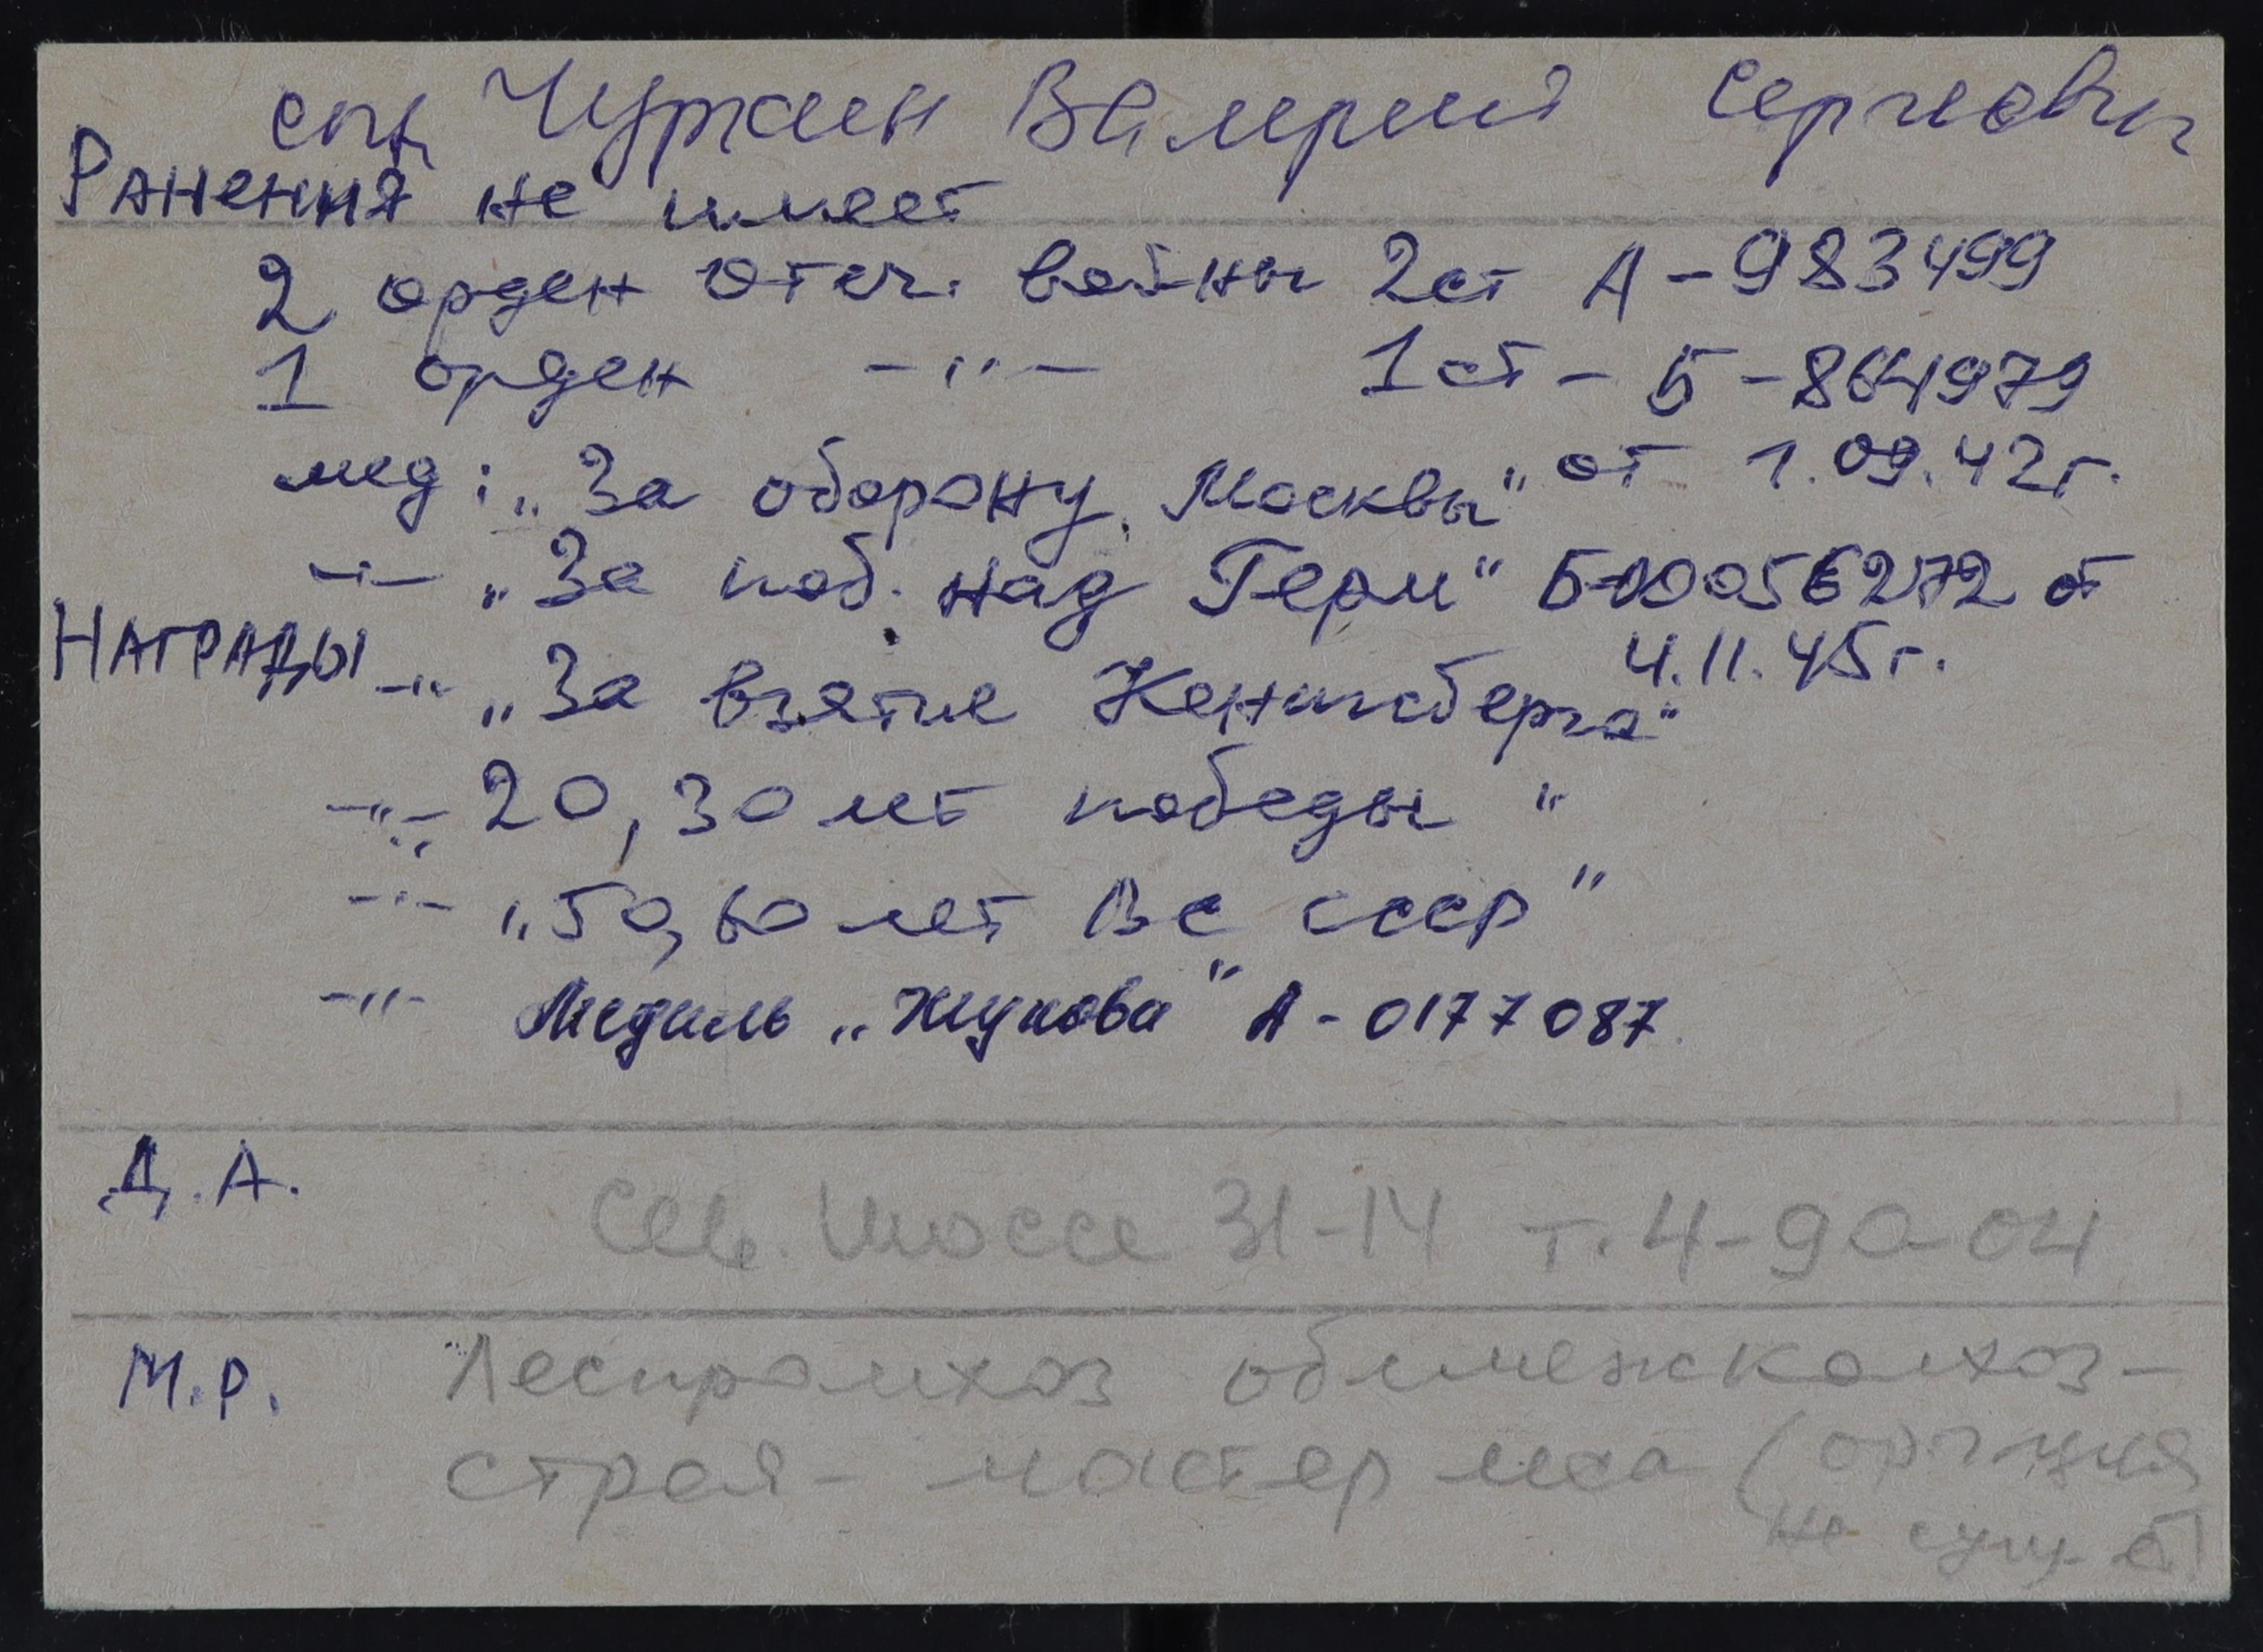 сын Чуркин Валерий Сергеевич
Ранения не имеет
2 орден Отеч. войны 2ст А-983499
1 орден -"- 1ст - Б-864979
мед: „За оборону Москвы" от 1.09.42г.
-"- „За поб. над Герм" Б-0056272 от
4.11.45г.
Награды -"- „За взятие Кенигсберга"
-"- „20, 30 лет победы"
-"- „50, 60 лет ВС СССР"
-"- Медаль „Жукова" А-0177087
Д.А. Сев. шоссе 31-14 т. 4-90-04
М.Р. Леспромхоз облмежколхоз-
строя - мастер леса (орг-ция
не сущ-ет)